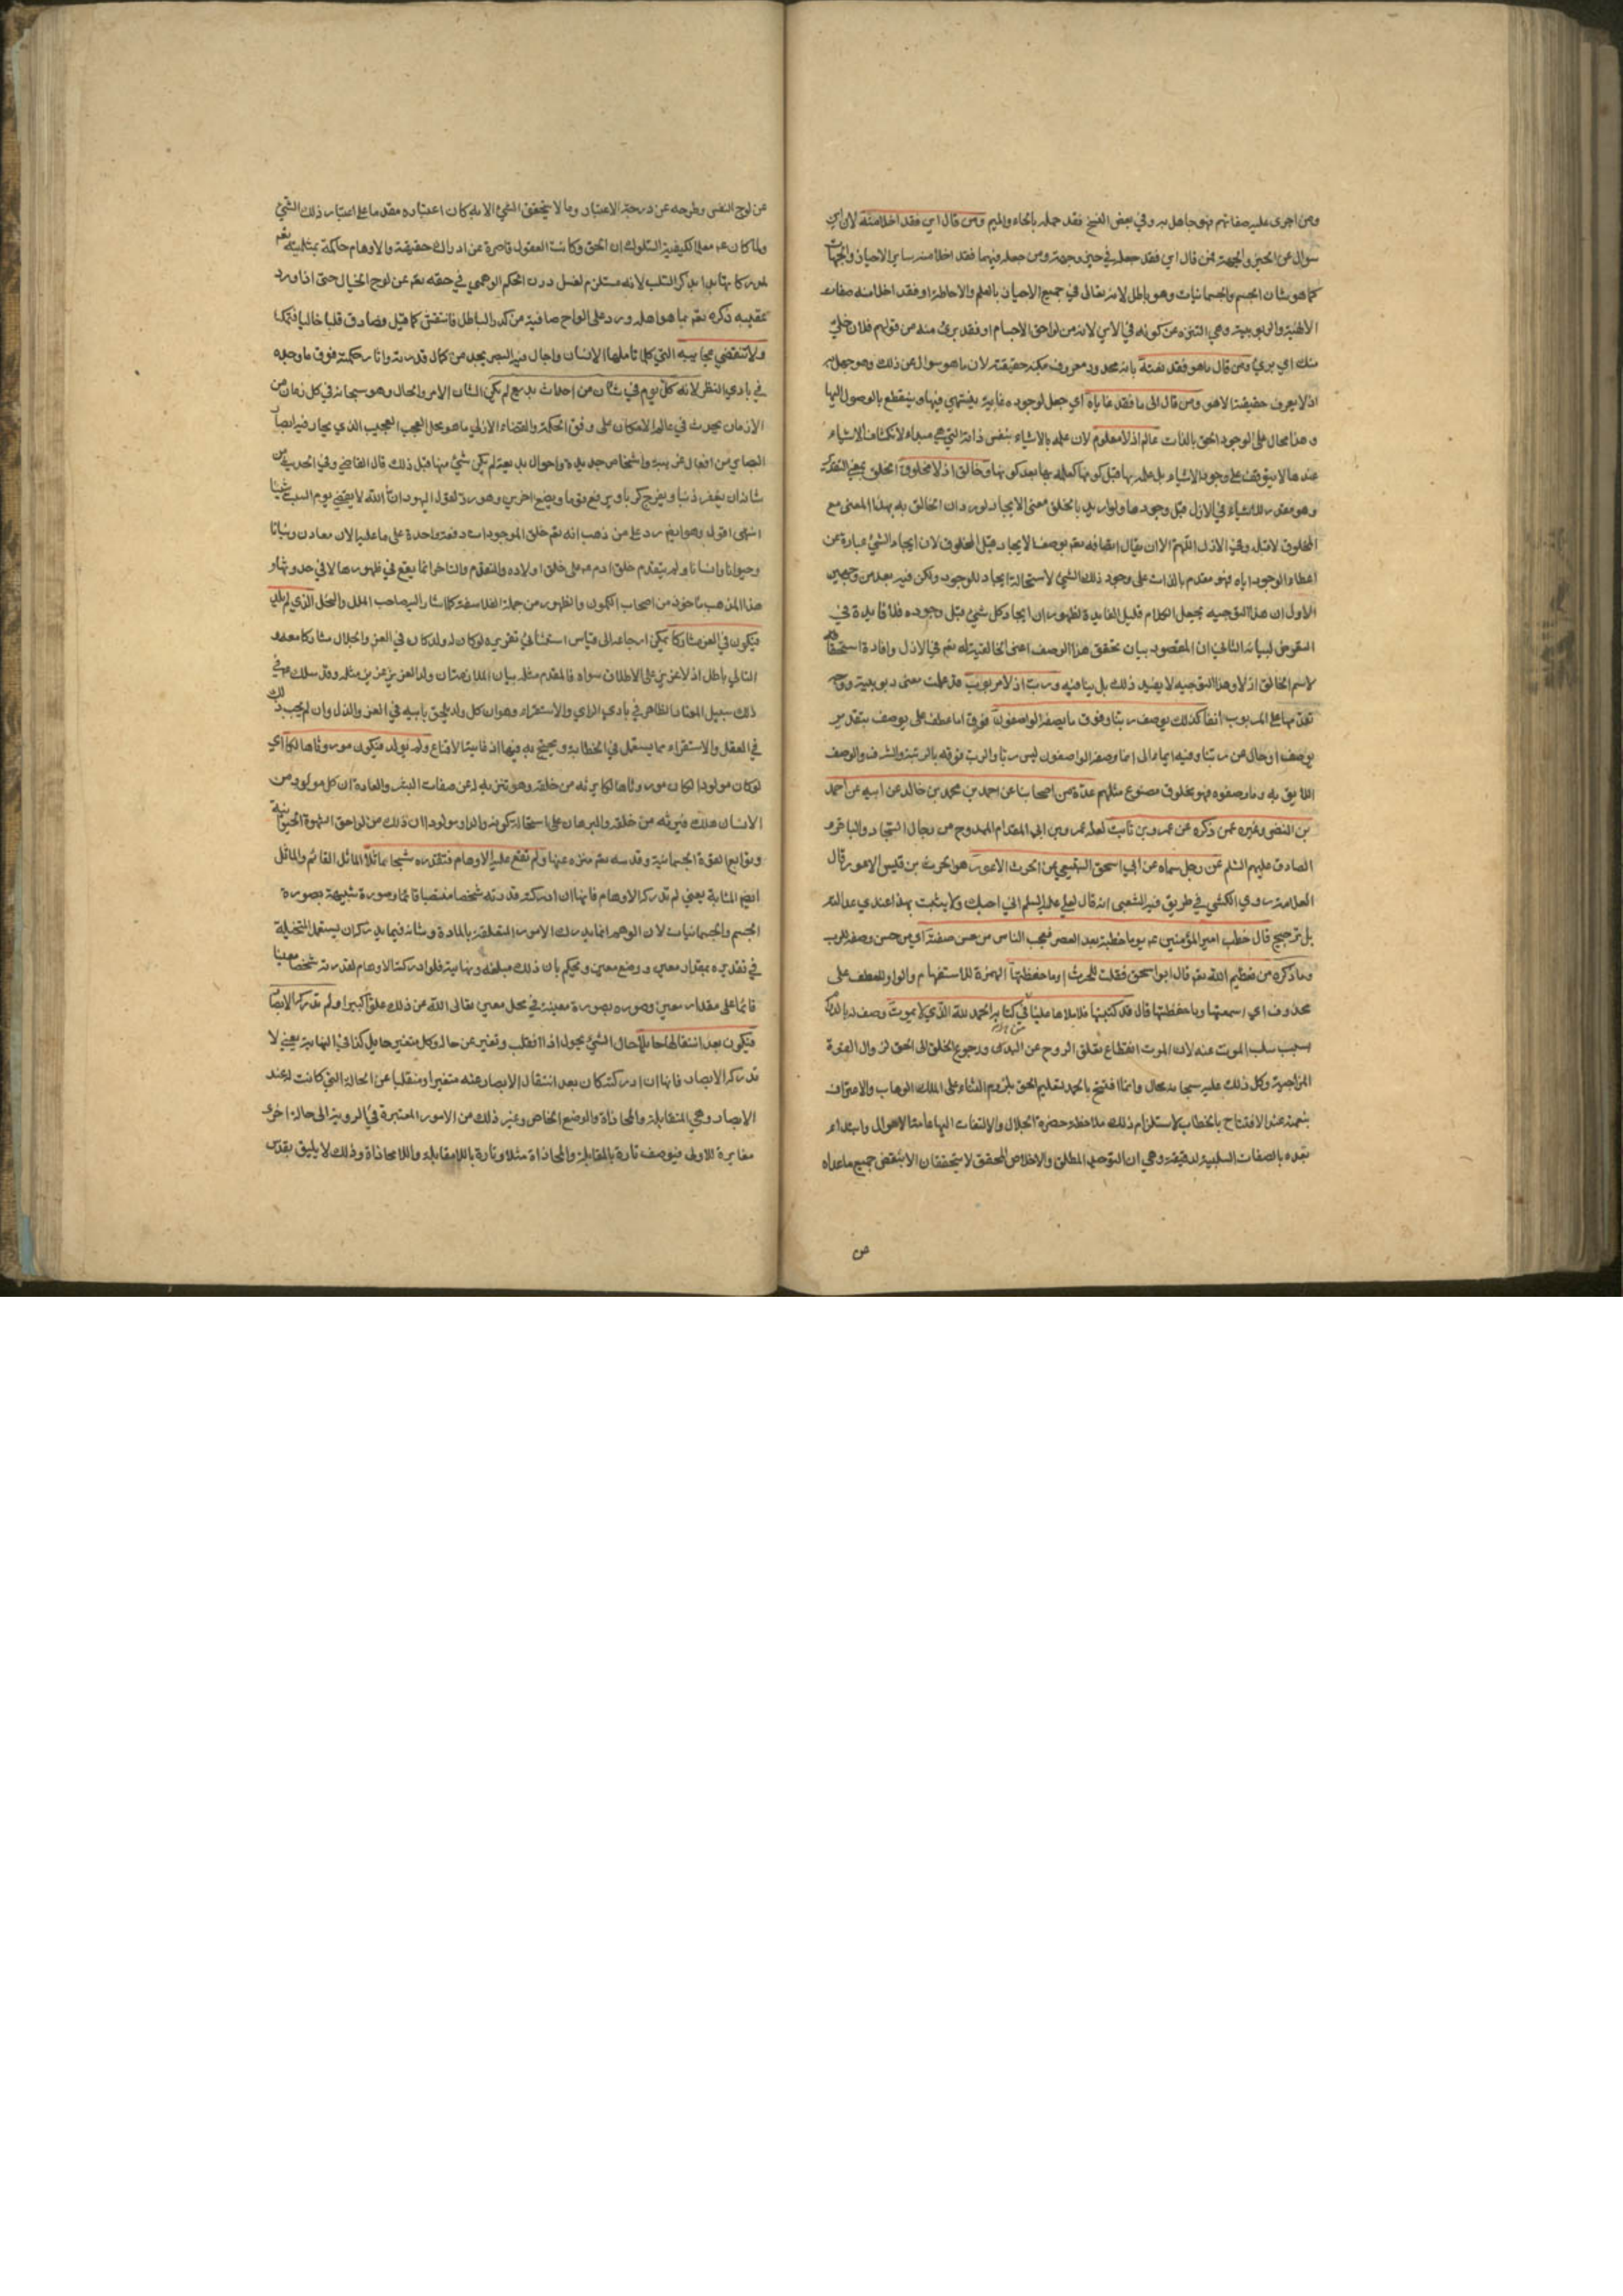 ومن اجرى عليه صفاتهم فهو جاهل به وفي بعض النسخ فقد حمله بالحاء والميم ومن قال اين فقد اخلا منه لان اين
سوال عن الحيز والجهة فمن قال اين فقد جعله في حيز وجهة ومن جعله فيهما فقد اخلا منه ساير الاحياز والجهات
كما هو شان الجسم والجسمانيات وهو باطل لانه تعالى في جميع الاحياز بالعلم والاحاطة او فقد اخلا منه صفات
الالهية والربوبية وهي التنزه عن كونه في الاين لانه من لواحق الاجسام او فقد برئ منه من قولهم فلان خلي
منك اي بريء ومن قال ما هو فقد نعته بانه محدود معروف بكنه حقيقته لان ما هو سوال عن ذلك وهو جهل به
اذ لا يعرف حقيقته الا هو ومن قال الى ما فقد غاياه اي جعل لوجوده غاية ينتهي فيها وينقطع بالوصول اليها
وهذا محال على الوجود الحق بالذات عالم اذ لا معلوم لان علمه بالاشياء بنفس ذاته التي هي مبداء لانكشاف الاشياء
عندها لا يتوقف على وجود الاشياء بل علمه بها قبل كونها كعلمه بها بعد كونها وخالق اذ لا مخلوق الخلق بمعنى التقدير
وهو مقدر للاشياء في الازل قبل وجودها ولو اريد بالخلق معنى الايجاد لورد ان الخالق به بهذا المعنى مع
المخلوق لا قبله وفي الازل اللهم الا ان يقال اتصافه تعم بوصف الايجاد قبل المخلوق لان ايجاد الشيء عبارة عن
اعطاء الوجود اياه فهو مقدم بالذات على وجود ذلك الشيء لاستحالة ايجاد الموجود ولكن فيه بعد من وجهين
الاول ان هذا التوجيه يجعل الكلام قليل الفايدة لظهور ان ايجاد كل شيء قبل وجوده فلا فايدة في
التعرض لبيانه الثاني ان المقصود بيان تحقق هذا الوصف اعني الخالقية له تعم في الازل وافادة استحقاقه
لاسم الخالق اذ لا وهذا التوجيه لا يفيد ذلك بل ينافيه ورب اذ لا مربوب قد علمت معنى ربوبيته ووجه
تقدمها على المربوب انفا كذلك يوصف ربنا وفوق ما يصفه الواصفون فوق اما عطف على يوصف بتقدير
يوصف او حال عن ربنا وفيه ايماء الى ان ما وصفه الواصفون ليس ربا والرب فوقه بالرتبة والشرف والوصف
اللايق به وما وصفوه فهو مخلوق مصنوع مثلهم عدة من اصحابنا عن احمد بن محمد بن خالد عن ابيه عن احمد
بن النضر وغيره عمن ذكره عن عمرو بن ثابت لعله عمرو بن ابي المقدام الممدوح من رجال السجاد والباقر و
الصادق عليهم السلم عن رجل سماه عن ابي اسحق السبيعي عن الحرث الاعور هو الحرث بن قيس الاعور قال
العلامة روى الكشي في طريق فيه الشعبي انه قال لعلي عليه السلم اني احبك ولا يثبت بهذا عندي عدالته
بل ترجيح قال خطب امير المؤمنين عم يوما خطبة بعد العصر فعجب الناس من حسن صفته اي من حسن وصفه للرب
وما ذكره من تعظيم الله تعم قال ابو اسحق فقلت للحرث اوما حفظتها الهمزة للاستفهام والواو للعطف على
محذوف اي اسمعتها وما حفظتها قال قد كتبتها فاملاها علينا من كتابه الحمد لله الذي لا يموت وصف له بالدوام
بسبب سلب الموت عنه لان الموت انقطاع تعلق الروح عن البدن ورجوع الخلق الى الحق لزوال القوة
المزاجية وكل ذلك عليه سبحانه محال وانما افتتح بالحمد لتعليم الخلق بلزوم الثناء على الملك الوهاب والاعتراف
بنعمته عند الافتتاح بالخطاب لاستلزام ذلك ملاحظة حضرة الجلال والالتفات اليها عامة الاحوال وابتداء
بعده بالصفات السلبية لدقيقة وهي ان التوحيد المطلق والاخلاص المحقق لا يتحققان الا بنقض جميع ما عداه
ص
عن لوح النفس وطرحه عن درجة الاعتبار وما لا يتحقق الشيء الا به كان اعتباره مقدما على اعتبار ذلك الشيء
ولما كان عم معلما لكيفية السلوك الى الحق وكانت العقول قاصرة عن ادراك حقيقته والاوهام حاكمة بمثليته تعم
لمدركاتها بدا بذكر السلب لانه مستلزم لغسل درن الحكم الوهمي في حقه تعم عن لوح الخيال حتى اذا ورد
عقيبه ذكره تعم بما هو اهله ورد على الواح صافية من كدر الباطل فانتقش كما قيل فصادف قلبا خاليا فتمكنا
ولا تنقضي عجايبه التي كلما تاملها الانسان واجال فيه البصر يجد من كمال قدرته واثار حكمته فوق ما وجده
في بادي النظر لانه كل يوم في شان من احداث بديع لم يكن الشان الامر والحال وهو سبحانه في كل زمان من
الازمان يحدث في عالم الامكان على وفق الحكمة والقضاء الازلي ما هو محل العجب العجيب الذي يحار فيه ابصار
البصاير من افعال غريبة واشخاص جديدة واحوال بديعة لم يكن شيء منها قبل ذلك قال القاضي وفي الحديث من
شانه ان يغفر ذنبا ويفرج كربا ويرفع قوما ويضع اخرين وهو رد لقول اليهود ان الله لا يقضي يوم السبت شيئا
انتهى اقول وهو ايضم رد على من ذهب انه تعم خلق الموجودات دفعة واحدة على ما عليه الان معادن ونباتا
وحيوانا وانسانا ولم يتقدم خلق ادم عم على خلق اولاده والتقدم والتاخر انما يقع في ظهورها لا في حدوثها و
هذا المذهب ماخوذ من اصحاب الكمون والظهور من جملة الفلاسفة كما اشار اليه صاحب الملل والنحل الذي لم يلد
فيكون في العز مشاركا يمكن ارجاعه الى قياس استثنائي تقريره لو كان له ولد كان في العز والجلال مشاركا معه و
التالي باطل اذ لا عزيز على الاطلاق سواه فالمقدم مثله بيان الملازمة ان ولد العزيز عزيز مثله وقد سلك عم في
ذلك سبيل المعتاد الظاهر في بادي الراي والاستقراء وهو ان كل ولد يلحق بابيه في العز والذل وان لم يجب ذلك
في العقل والاستقراء مما يستعمل في الخطابة ويحتج به فيها اذ غايتها الاقناع ولم يولد فيكون موروثا هالكا اي
لو كان مولودا لكان موروثا هالكا يرثه من خلقه وهو تنزيه له عن صفات البشر والعادة ان كل مولود من
الانسان هلك فيرثه من خلقه والبرهان على استحالة كونه والدا ومولودا ان ذلك من لواحق الشهوة الحيوانية
وتوابع القوة الجسمانية وقدسه تعم منزه عنها ولم تقع عليه الاوهام فتقدره شبحا ماثلا الماثل القائم والماثل
ايضم المشابه يعني لم تدركه الاوهام فانها ان ادركته قدرته شخصا منتصبا قائما وصورة شبيهة بصورة
الجسم والجسمانيات لان الوهم انما يدرك الامور المتعلقة بالمادة وشانه فيما يدركه ان يستعمل المتخيلة
في تقديره بمقدار معين ووضع معين ويحكم بان ذلك مبلغه ونهايته فلو ادركته الاوهام لقدرته شخصا معينا
قائما على مقدار معين وصوره بصورة معينة في محل معين تعالى الله عن ذلك علوا كبيرا ولم تدركه الابصار
فيكون بعد انتقالها حايلا حال الشيء يحول اذا انقلب وتغير عن حاله وكل متغير حايل كذا في النهاية يعني لا
تدركه الابصار فانها ان ادركته كان بعد انتقال الابصار عنه متغيرا ومنقلبا عن الحالة التي كانت له عند
الابصار وهي المقابلة والمحاذاة والوضع الخاص وغير ذلك من الامور المعتبرة في الروية الى حالة اخرى
مغايرة للاولى فيوصف تارة بالمقابلة والمحاذاة مثلا وتارة باللامقابلة واللامحاذاة وذلك لا يليق بقدس